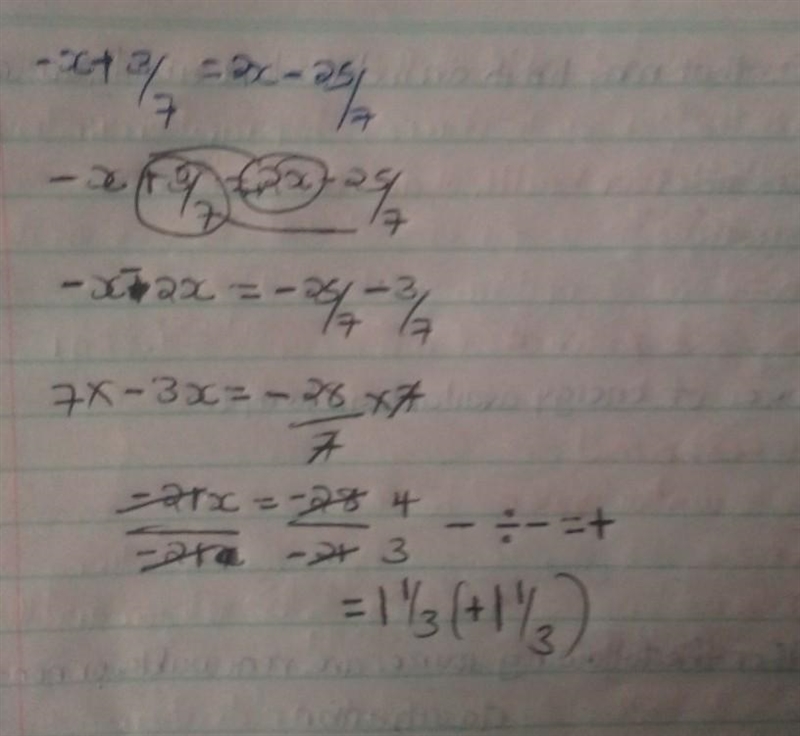 -x + 3/7 = 2x - 25/7
-x + 3/7 = 2x - 25/7
-x - 2x = -25/7 - 3/7
7 x - 3x = -28/7 x 7
-21x/-21 = -28/-21 4/3 - ÷ - = +
= 1 1/3 (+1 1/3)